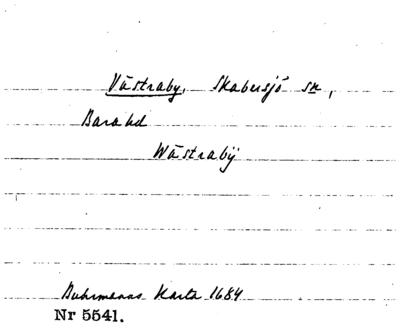 Västraby, Skabersjö sn,
Bara hd
Wästraby
Buhrmanns Karta 1684
Nr 5541.